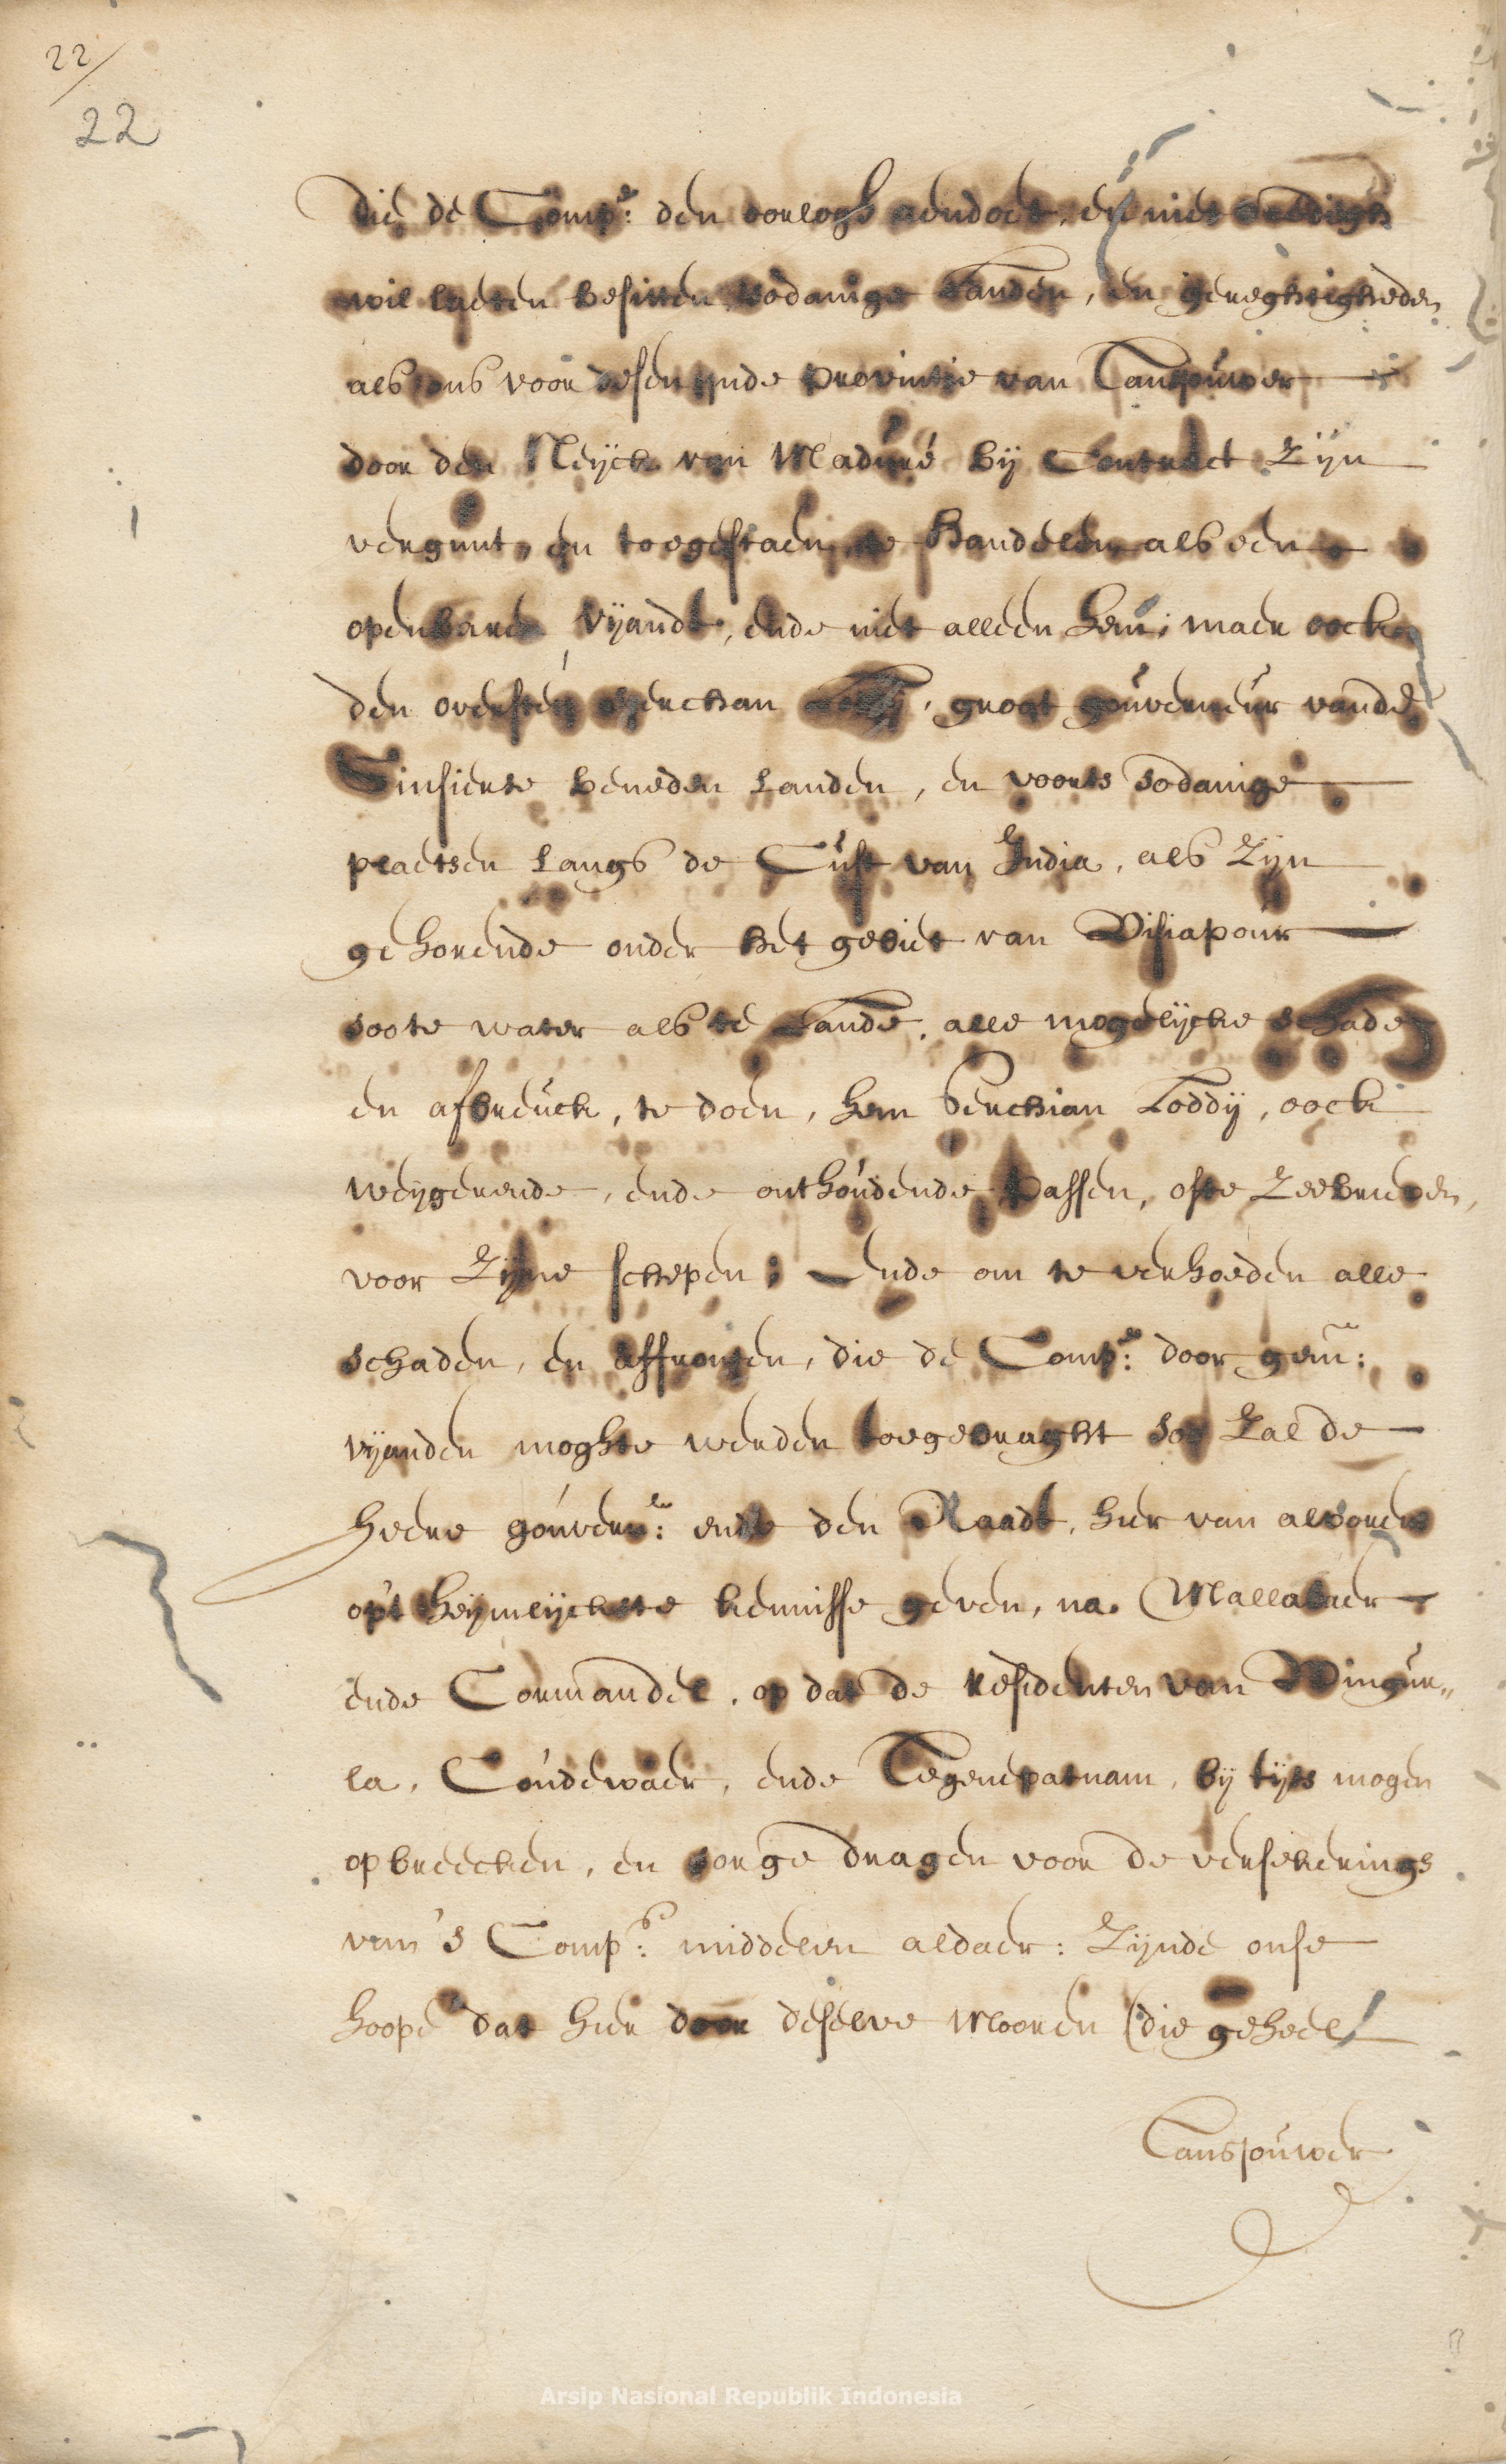 22/
22
die de Comp:e den oorlogh aendoet, en niet vredigh
wil laeten besitten sodanige Landen, en geregtigheden
als ons voor desen inde provintie van Tansjouwer
door den Neyck van Maduré bij Contract zijn
vergunt, en toegestaen, te handelen als een
openbaren vijandt, ende niet alleen hem, maer oock
den oversten Serchan Loddij, groot gouverneur vande
Sinsierse beneden Landen, en voorts sodanige
plaetsen Langs de Cust van India, als zijn
gehorende onder het gebiet van Visiapour
soo te water als te Lande, alle mogelijcke schade
en afbreuck, te doen, hem Serchian Loddij, oock
weijgerende, ende onthoudende Passen, ofte Zeebrieven,
voor Zijne schepen; Ende om te verhoeden alle
schaden, en affronten, die de Comp:e door gem:
vijanden moghte werden toegebraght soo Zal de
Heere gouvern:r ende den Raadt, hier van alvorens
op't heijmelijckste kennisse geven, na Mallabaer
ende Cormandel, op dat de residenten van Wingur„
la, Coudewaer, ende Tegenepatnam, bij tijts mogen
opbreecken, en sorge dragen voor de versekerings
van 's Comp:s middelen aldaer: Zijnde onse
hoope dat hier door deselve Mooren (die geheel
Tansjouwer
Arsip Nasional Republik Indonesia